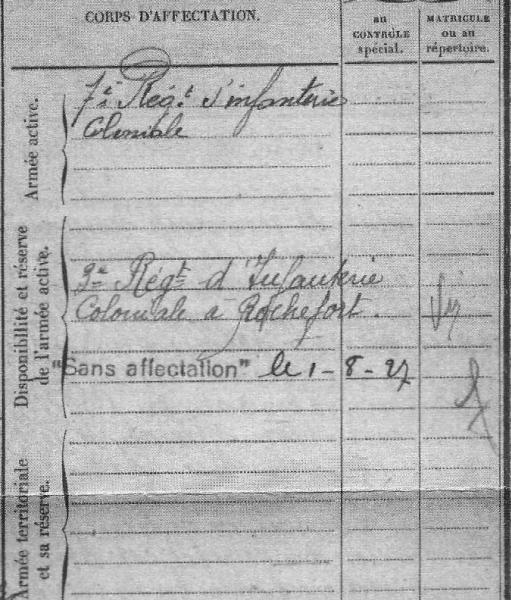 CORPS D'AFFECTATION.
au
CONTRÔLE
spécial.
MATRICULE
ou au
répertoire.
Armée active.
7e Régt d'infanterie
Coloniale
Disponibilité et réserve
de l'armée active.
Régt d'Infanterie
Coloniale à Rochefort.
"Sans affectation" le 1-8-27
Armée territoriale
et sa réserve.